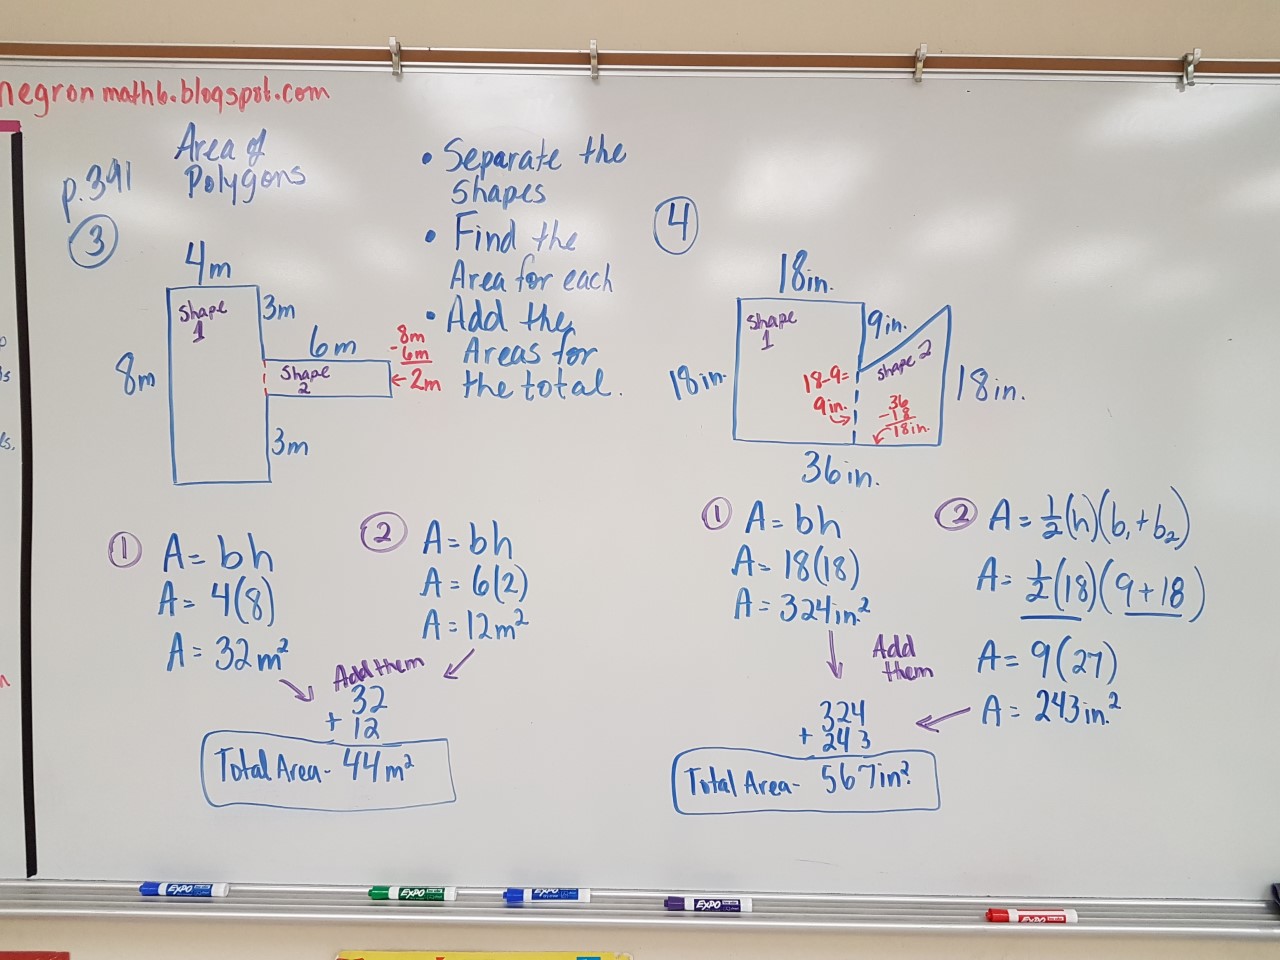 negronmath6.blogspot.com
Area of
Polygons
p.391
③
4m
Shape
1
3m
8m
6m
Shape
2
8m
- 6m
← 2m
3m
• Separate the
Shapes
• Find the
Area for each
• Add the
Areas for
the total.
④
18in.
Shape
1
9in.
Shape 2
18in.
18-9=
9in.
36
-18
18in.
18in.
36in.
① A = bh
A = 4(8)
A = 32m²
② A = bh
A = 6(2)
A = 12m²
Add them
32
+ 12
Total Area- 44m²
① A = bh
A = 18(18)
A = 324in²
② A = ½(h)(b₁+b₂)
A = ½(18)(9+18)
A = 9(27)
A = 243in.²
Add
them
324
+ 243
Total Area- 567in².
EXPO
EXPO
EXPO
EXPO
EXPO